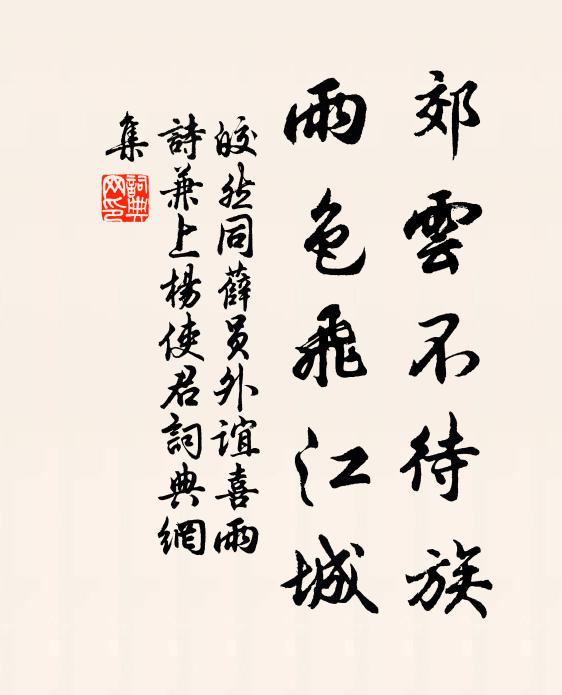 郊雲不待族
雨色飛江城
皎然同薛員外誼喜雨
詩兼上楊使君詞典網
集
詞典
网印